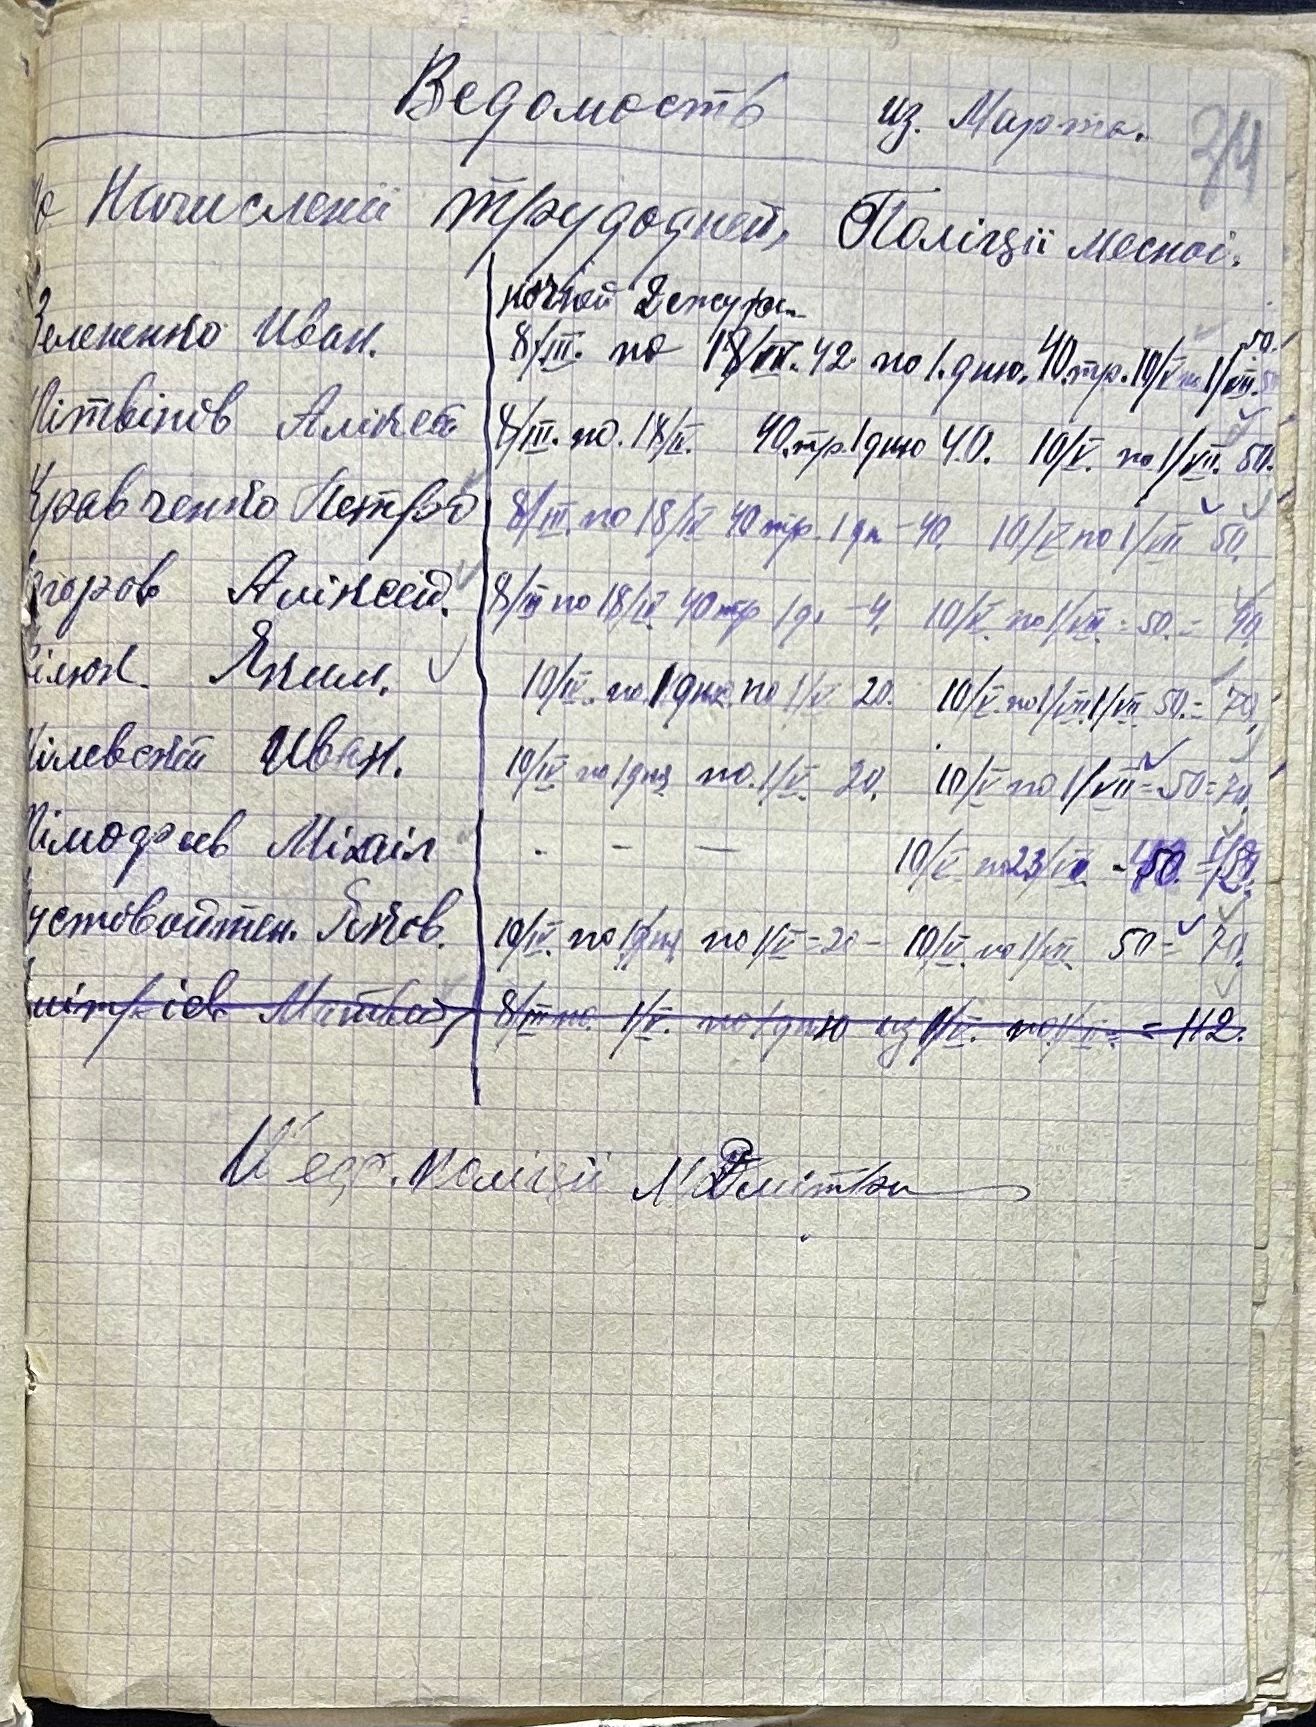 Ведомость из. Марта.
24
о Начисленіі трудодней, Поліціі месної.
ночной Дежурн.
Зелененко Иван. 8/III. по 18/IV. 42 по 1. дню. 40. тр. 10/V по 1/VII. 50.
Літвінов Аліксей 8/III. по. 18/IV. 40. тр. 1 дню 40. 10/V. по 1/VII. 50.
Кравченко Петро 8/III. по 18/IV 40 тр. 1 дн - 40. 10/V по 1/VII 50.
Егоров Аліксей. 8/III по 18/IV. 40 тр 1 д - 4. 10/V. по 1/VII. = 50. =
Яким. 10/IV. по. 1 дню. по 1/V 20. 10/V. по 1/VII 1/VII 50. = 70.
ілевский Иван. 10/IV по 1 дня по. 1/V. 20. 10/V по 1/VII = 50 = 70.
Тімофеев Міхаіл - - — 10/V. по 23/VII - 50. =
устовойтен. Яков. 10/IV. по 1 дня по 1/V = 20 - 10/V. по 1/VII. 50 = 70.
мітріев Матвей 8/III по. 1/V. по 1 дню из 1/V. по. 1/V = 112.
Шеф. Поліціі М. Дмітри